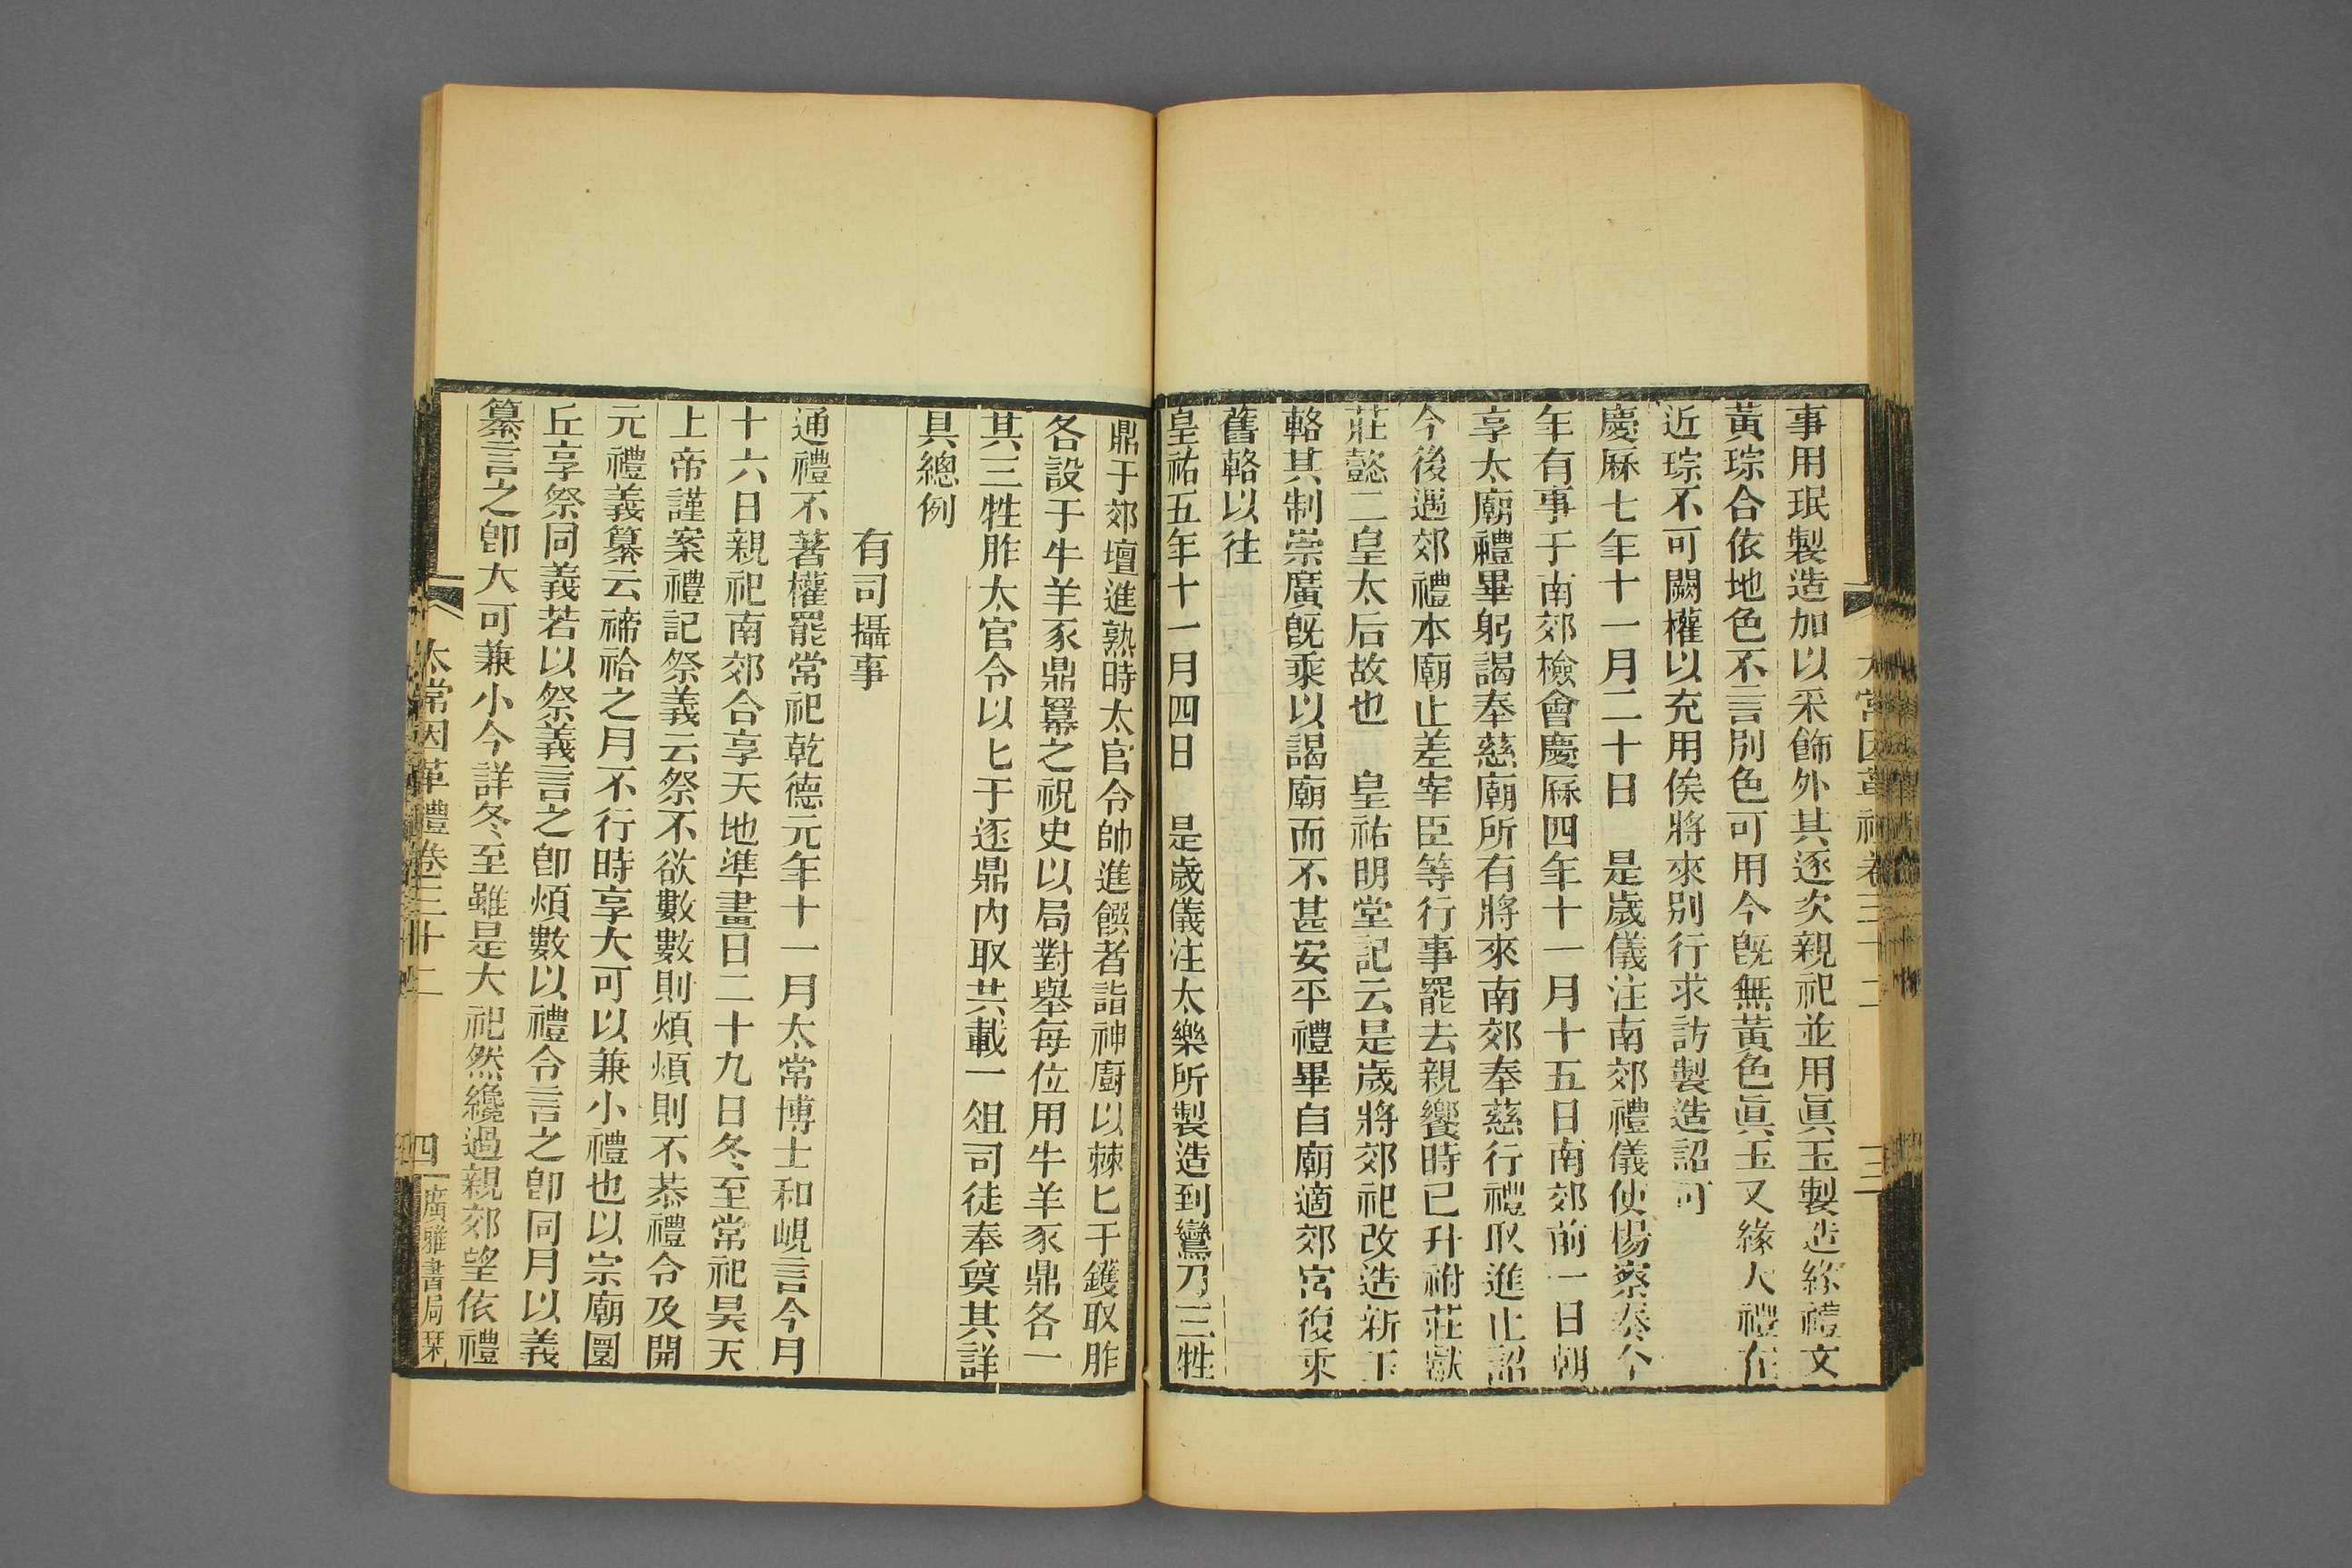 事用珉製造加以采飾外其逐次親祀並用眞玉製造緣禮文
黃琮合依地色不言別色可用今旣無黃色眞玉又緣大禮在
近琮不可闕權以充用俟將來別行求訪製造詔可
慶厤七年十一月二十日　是歲儀注南郊禮儀使楊察奏今
年有事于南郊檢會慶厤四年十一月十五日南郊前一日朝
享太廟禮畢躬謁奉慈廟所有將來南郊奉慈行禮取進止詔
今後遇郊禮本廟止差宰臣等行事罷去親饗時已升祔莊獻
莊懿二皇太后故也　皇祐明堂記云是歲將郊祀改造新玉
輅其制崇廣旣乘以謁廟而不甚安平禮畢自廟適郊宮復乘
舊輅以往
皇祐五年十一月四日　是歲儀注太樂所製造到鸞刀三牲
鼎于郊壇進熟時太官令帥進饌者詣神廚以棘匕于鑊取胙
各設于牛羊豕鼎冪之祝史以局對舉每位用牛羊豕鼎各一
其三牲胙太官令以匕于逐鼎內取共載一俎司徒奉奠其詳
具總例
有司攝事
通禮不著權罷常祀乾德元年十一月太常博士和峴言今月
十六日親祀南郊合享天地準畫日二十九日冬至常祀昊天
上帝謹案禮記祭義云祭不欲數數則煩煩則不恭禮令及開
元禮義纂云禘祫之月不行時享大可以兼小禮也以宗廟圜
丘享祭同義若以祭義言之卽煩數以禮令言之卽同月以義
纂言之卽大可兼小今詳冬至雖是大祀然纔過親郊望依禮
太常因革禮卷三十二
四
廣雅書局栞